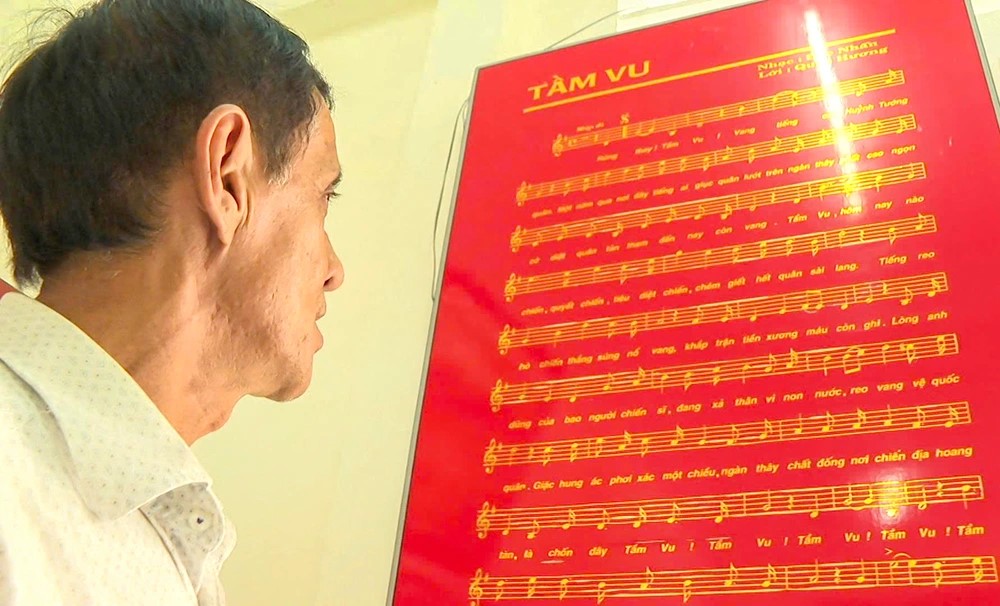 TẦM VU
Nhạc : Nhẫn
Lời : Quốc Hương
Nhịp đi
Rừng thay! Tầm Vu , Vang tiếng Huỳnh Tường
quân. Một năm qua nơi đây tiếng ai giục quân lướt trên ngàn thây cao ngọn
cờ diệt quân tàn tham đến nay còn vang . Tầm Vu , hôm nay nào
chiến, quyết chiến , tiêu diệt chiến, chém giết hết quân sài lang. Tiếng reo
hò chiến thắng súng nổ vang, khắp trận tiền xương máu còn ghi . Lòng anh
dũng của bao người chiến sĩ , đang xả thân vì non nước, reo vang vệ quốc
quân . Giặc hung ác phơi xác một chiều, ngàn thây chất đống nơi chiến địa hoang
tàn, là chốn đây Tầm Vu ! Tầm Vu ! Tầm Vu ! Tầm Vu ! Tầm